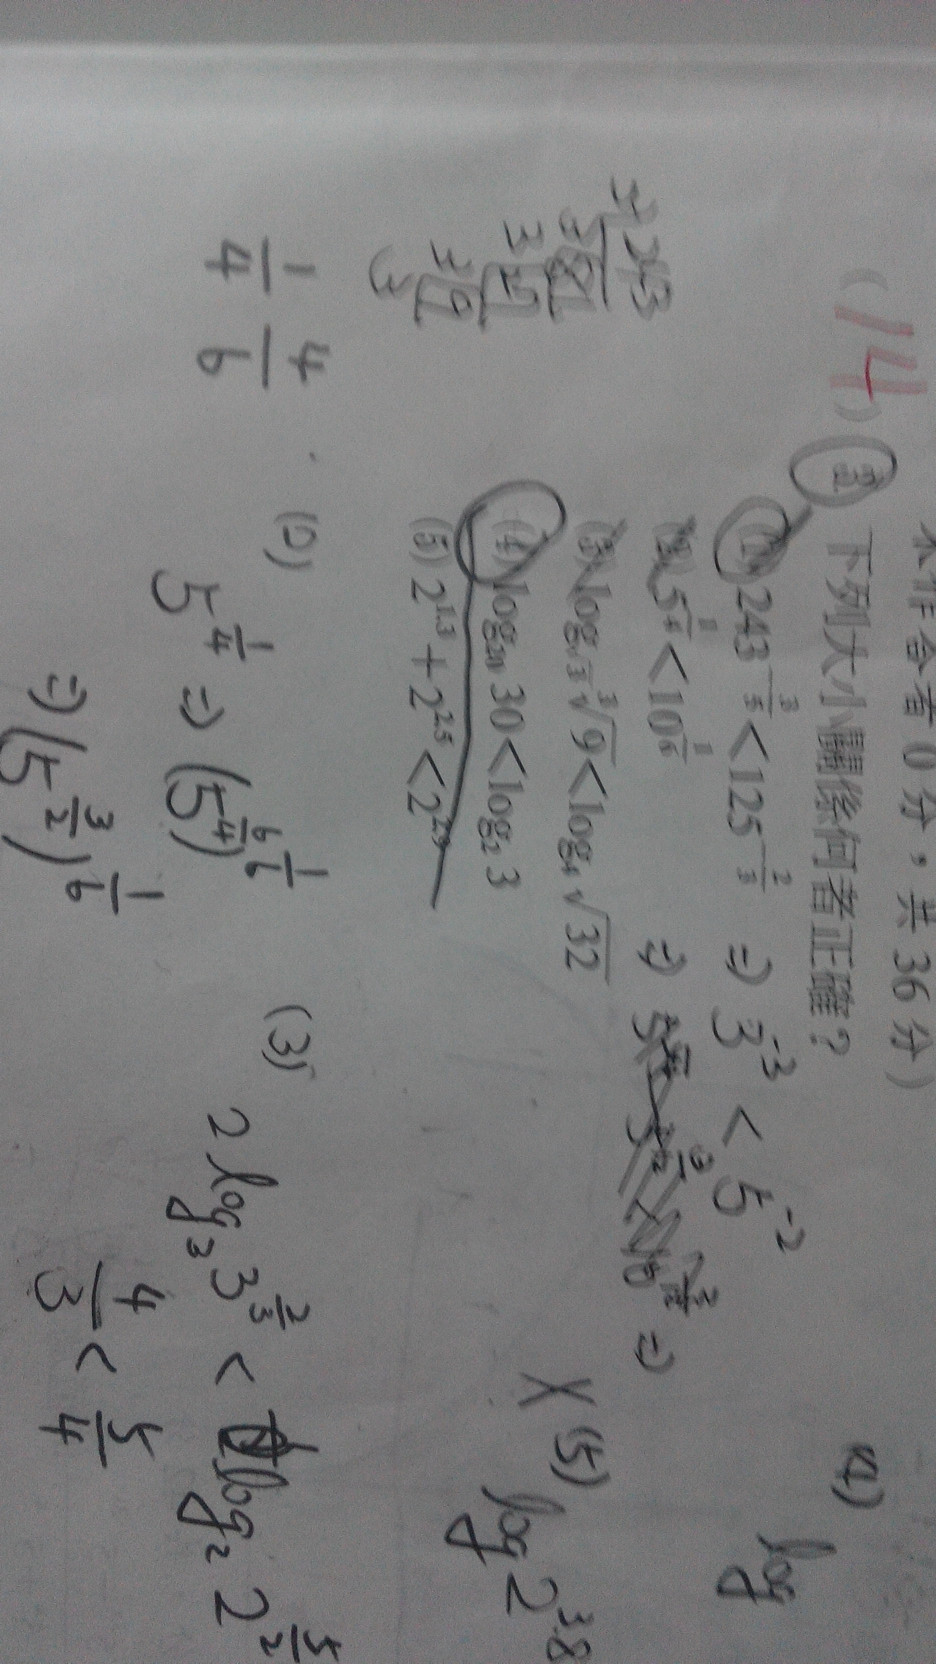 未作答者0分，共36分）
(14) 2 下列大小關係何者正確？
(1) 243^{-3/5} < 125^{-2/3} ⇒ 3^{-3} < 5^{-2}
(2) 5^{1/4} < 10^{1/6} ⇒
(3) log_{√3} ∛9 < log_4 √32
(4) log_{20} 30 < log_2 3
(5) 2^{1.3} + 2^{2.5} < 2^{2.9}
(4) log
X (5) log 2^{3.8}
3 243
3 81
3 27
3 9
3
1/4 4/6
(2) 5^{1/4} ⇒ (5^{6/4})^{1/6}
⇒ (5^{3/2})^{1/6}
(3) 2 log_3 3^{2/3} < log_2 2^{5/2}
4/3 < 5/4